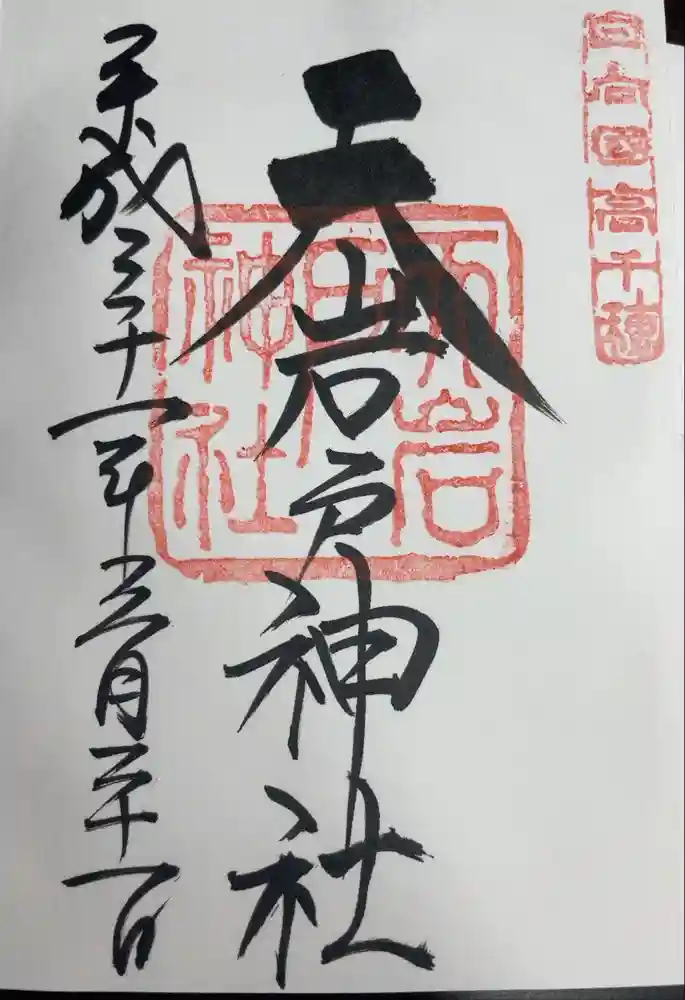 日向国高千穂
天岩戸神社
天岩戸神社
平成三十一年三月二十一日